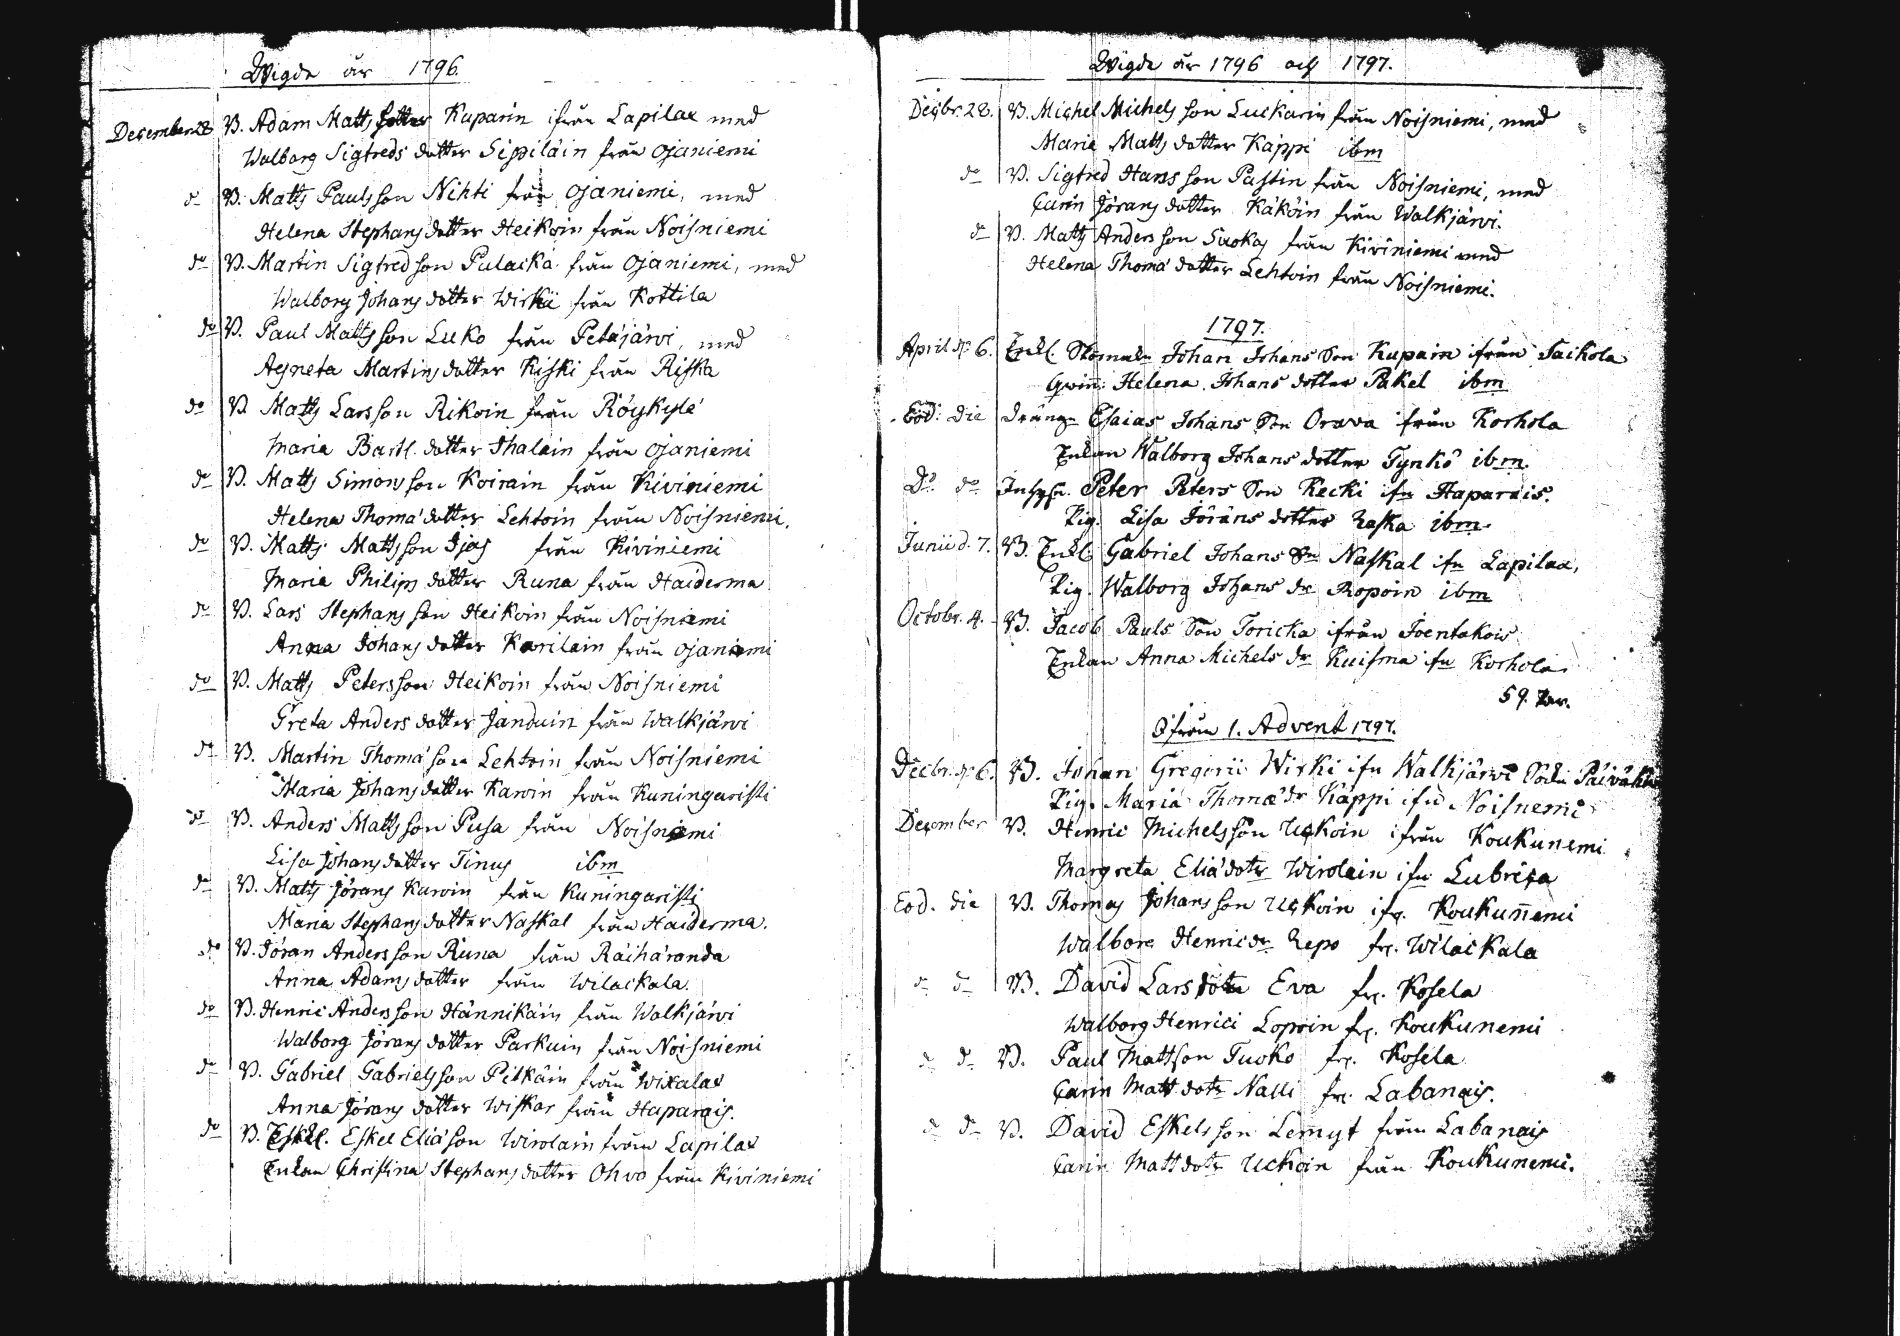 Wigda år 1796.
Desember 28 V. Adam Matts dotter Kuparin ifrån Lapilax med
Walborg Sigfreds dotter Sipiläin från Ojaniemi
do V. Matts Pauls son Nihti från Ojaniemi, med
Helena Stephans dotter Heikoin från Noisniemi
do V. Martin Sigfred son Pulacka från Ojaniemi, med
Walborg Johans dotter Wirkii från Kottila
do V. Paul Matts son Luko från Petäjärvi, med
Agneta Martins dotter Kiski från Riska
do V. Matts Lars son Rikoin från Röykylä
Maria Bartl. dotter Ihalain från Ojaniemi
do V. Matts Simons son Koirain från Kiviniemi
Helena Thomä dotter Lehtoin från Noisniemi.
do V. Matts Matts son Ijas från Kiviniemi
Maria Philips dotter Runa från Haiderma
do V. Lars Stephans son Heikoin från Noisniemi
Anna Johans dotter Karilain från Ojaniemi
do V. Matts Peters son Heikoin från Noisniemi
Greta Anders dotter Janduin från Walkjärvi
do V. Martin Thomä son Lehtoin från Noisniemi
Maria Johans dotter Karvin från Kuningaristi
do V. Anders Matts son Pusa från Noisniemi
Lisa Johans dotter Tinus ibm
do V. Matts Jörans Karvin från Kuningaristi
Maria Stephans dotter Naskal från Haiderma.
do V. Jöran Anders son Runa från Räihäranda
Anna Adams dotter från Wilackala
do V. Henric Anders son Hännikäin från Walkjärvi
Walborg Jörans dotter Parkuin från Noisniemi
do V. Gabriel Gabriels son Pitkäin från Wixalax
Anna Jörans dotter Wiskar från Haparais.
do V. Eskel Eliä son Wirolain från Lapilax
Enkan Christina Stephans dotter Ohvo från Kiviniemi
Wigda år 1796 och 1797.
Decbr. 28. V. Michel Michels son Luckarin från Noisniemi, med
Maria Matts dotter Käppi ibm
do V. Sigfred Hans son Pastin från Noisniemi, med
Carin Jörans dotter Käköin från Walkjärvi.
do V. Matts Anders son Suokas från Kiviniemi med
Helena Thomä dotter Lehtoin från Noisniemi.
1797.
April d. 6. Enkl. Johan Johans Son Kupain ifrån Saikola
Qwin: Helena Johans dotter Pakel ibm
Eod: die dräng: Esaias Johans Son Orava från Korhola
Enkan Walborg Johans dotter Tynkö ibm.
Do do Inhys. Peter Peters Son Kecki ifn Haparais.
Pig. Lisa Jörans dotter Raska ibm.
Junii d. 7. V. Enkl. Gabriel Johans Sn Naskal ifn Lapilax,
Pig. Walborg Johans dr Ropoin ibm
Octobr. 4. V. Jacob Pauls Son Toricka ifrån Joentakois
Enkan Anna Michels dr Kuisma ifn Korhola.
59. Par.
Ifrån 1. Advent 1797.
Decbr. d. 6. V. Johan Gregorii Wirki ifn Walkjärvi
Pig. Maria Thomæ dr Käppi ifrå Noisnemi
December V. Henric Michelsson Uckoin ifrån Koukunemi
Margreta Eliä dotr Wirolain ifn Lubriza
Eod. die V. Thomas Johans son Uckoin ifr. Koukunnemi
Walborg Henric dr Repo fr. Wilackala
d d V. David Lars dotr Eva fr. Kosela
Walborg Henrici Lopoin fr. Koukunemi
d d V. Paul Mattson Tuoko fr. Kosela
Carin Matt dotr Nalli fr. Labanais.
d d V. David Eskels son Lemyt från Labanais
Carin Matt dotr Uckoin från Koukunemi.